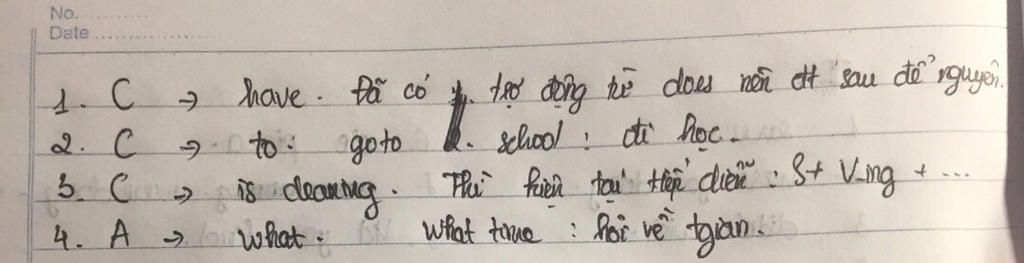 No. ............
Date .....................
1. C → have. Đã có trợ động từ does nên đt sau để nguyên.
2. C → to. go to school : đi học.
3. C → is cleaning. Thì hiện tại tiếp diễn : S + V-ing + ...
4. A → What. What time : hỏi về tgian.